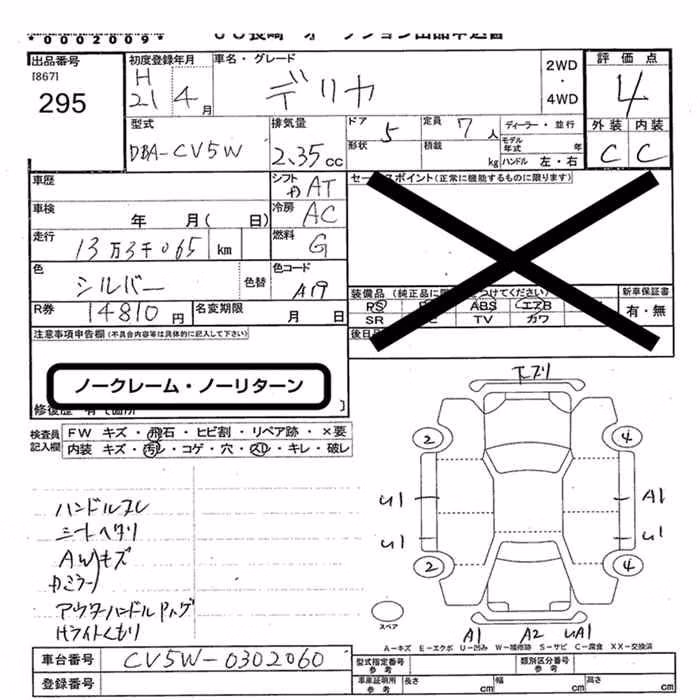 *0002009*
出品番号
[867]
295
初度登録年月
H
21 4月
車名・グレード
デリカ
2WD
・
4WD
評価点
4
外装 内装
C C
型式
DBA-CV5W
排気量
2.35cc
ドア 5
形状
定員 7人
積載 kg
ディーラー・並行
モデル年式 年
ハンドル 左・右
車歴
シフト AT
セールスポイント(正常に機能するものに限ります)
車検 年 月( 日)
冷房 AC
走行 13万3千065 km
燃料 G
色 シルバー
色替
色コード A19
装備品(純正品に限
つけてください)
新車保証書
有・無
PS ABS エアB
SR TV カワ
R券 14810円
名変期限 月 日
後日
注意事項申告欄(不具合内容等は具体的に記入して下さい)
ノークレーム・ノーリターン
修復歴 有 て箇所 ]
検査員記入欄
FW キズ・飛石・ヒビ割・リペア跡・×要
内装 キズ・汚レ・コゲ・穴・スレ・キレ・破レ
ハンドルスレ
シートヘタリ
AWキズ
アウタハンドル
Hライトくもり
下スリ
2 4
U1 A1
U1 U1
2 4
スペア
A1 A2 UA1
A-キズ E-エクボ U-凹み W-補修跡 S-サビ C-腐食 XX-交換済
車台番号 CV5W-0302060
型式指定番号 参考
類別区分番号 参考
登録番号
車庫証明用 参考
長さ cm
幅 cm
高さ cm